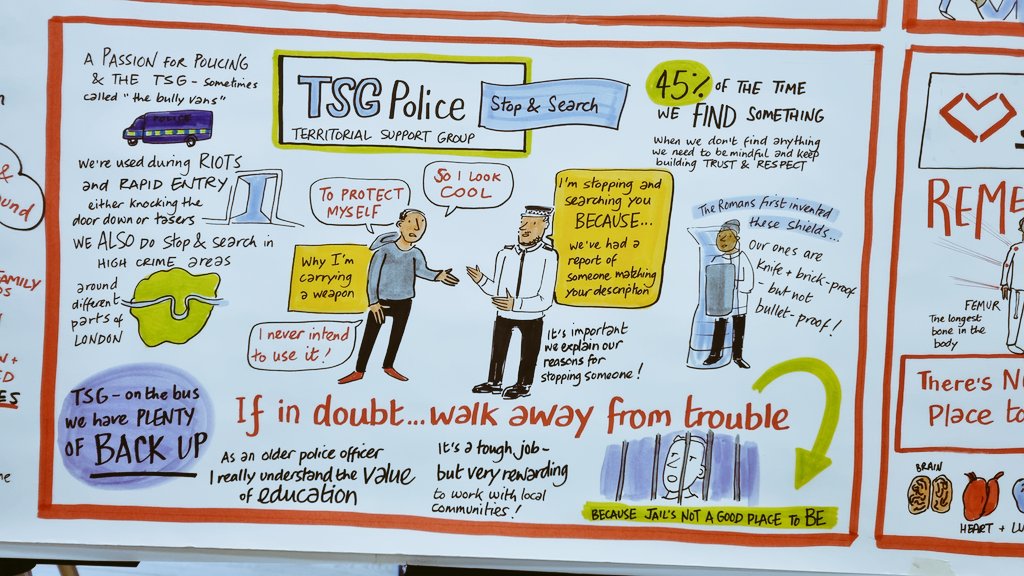 A PASSION FOR POLICING
& THE TSG - sometimes
called "the bully vans"
POLICE
we're used during RIOTS
and RAPID ENTRY
either knocking the
door down or tasers
WE ALSO do stop & search in
HIGH CRIME areas
around
different
parts of
LONDON
TSG - on the bus
we have PLENTY
OF BACK UP
TSG Police
TERRITORIAL SUPPORT GROUP
Stop & Search
45% OF THE TIME
WE FIND SOMETHING
when we don't find anything
we need to be mindful and keep
building TRUST & RESPECT
TO PROTECT
MYSELF
SO I LOOK
COOL
Why I'm
carrying
a weapon
I never intend
to use it!
I'm stopping and
searching you
BECAUSE...
we've had a
report of
someone matching
your description
It's important
we explain our
reasons for
stopping someone!
The Romans first invented
these shields...
Our ones are
knife + brick-proof
- but not
bullet-proof!
If in doubt...walk away from trouble
As an older police officer
I really understand the value
of education
It's a tough job -
but very rewarding
to work with local
communities!
BECAUSE JAIL'S NOT A GOOD PLACE TO BE
&
ound
FAMILY
REME
FEMUR
The longest
bone in the
body
There's N
Place to
BRAIN
HEART + LU